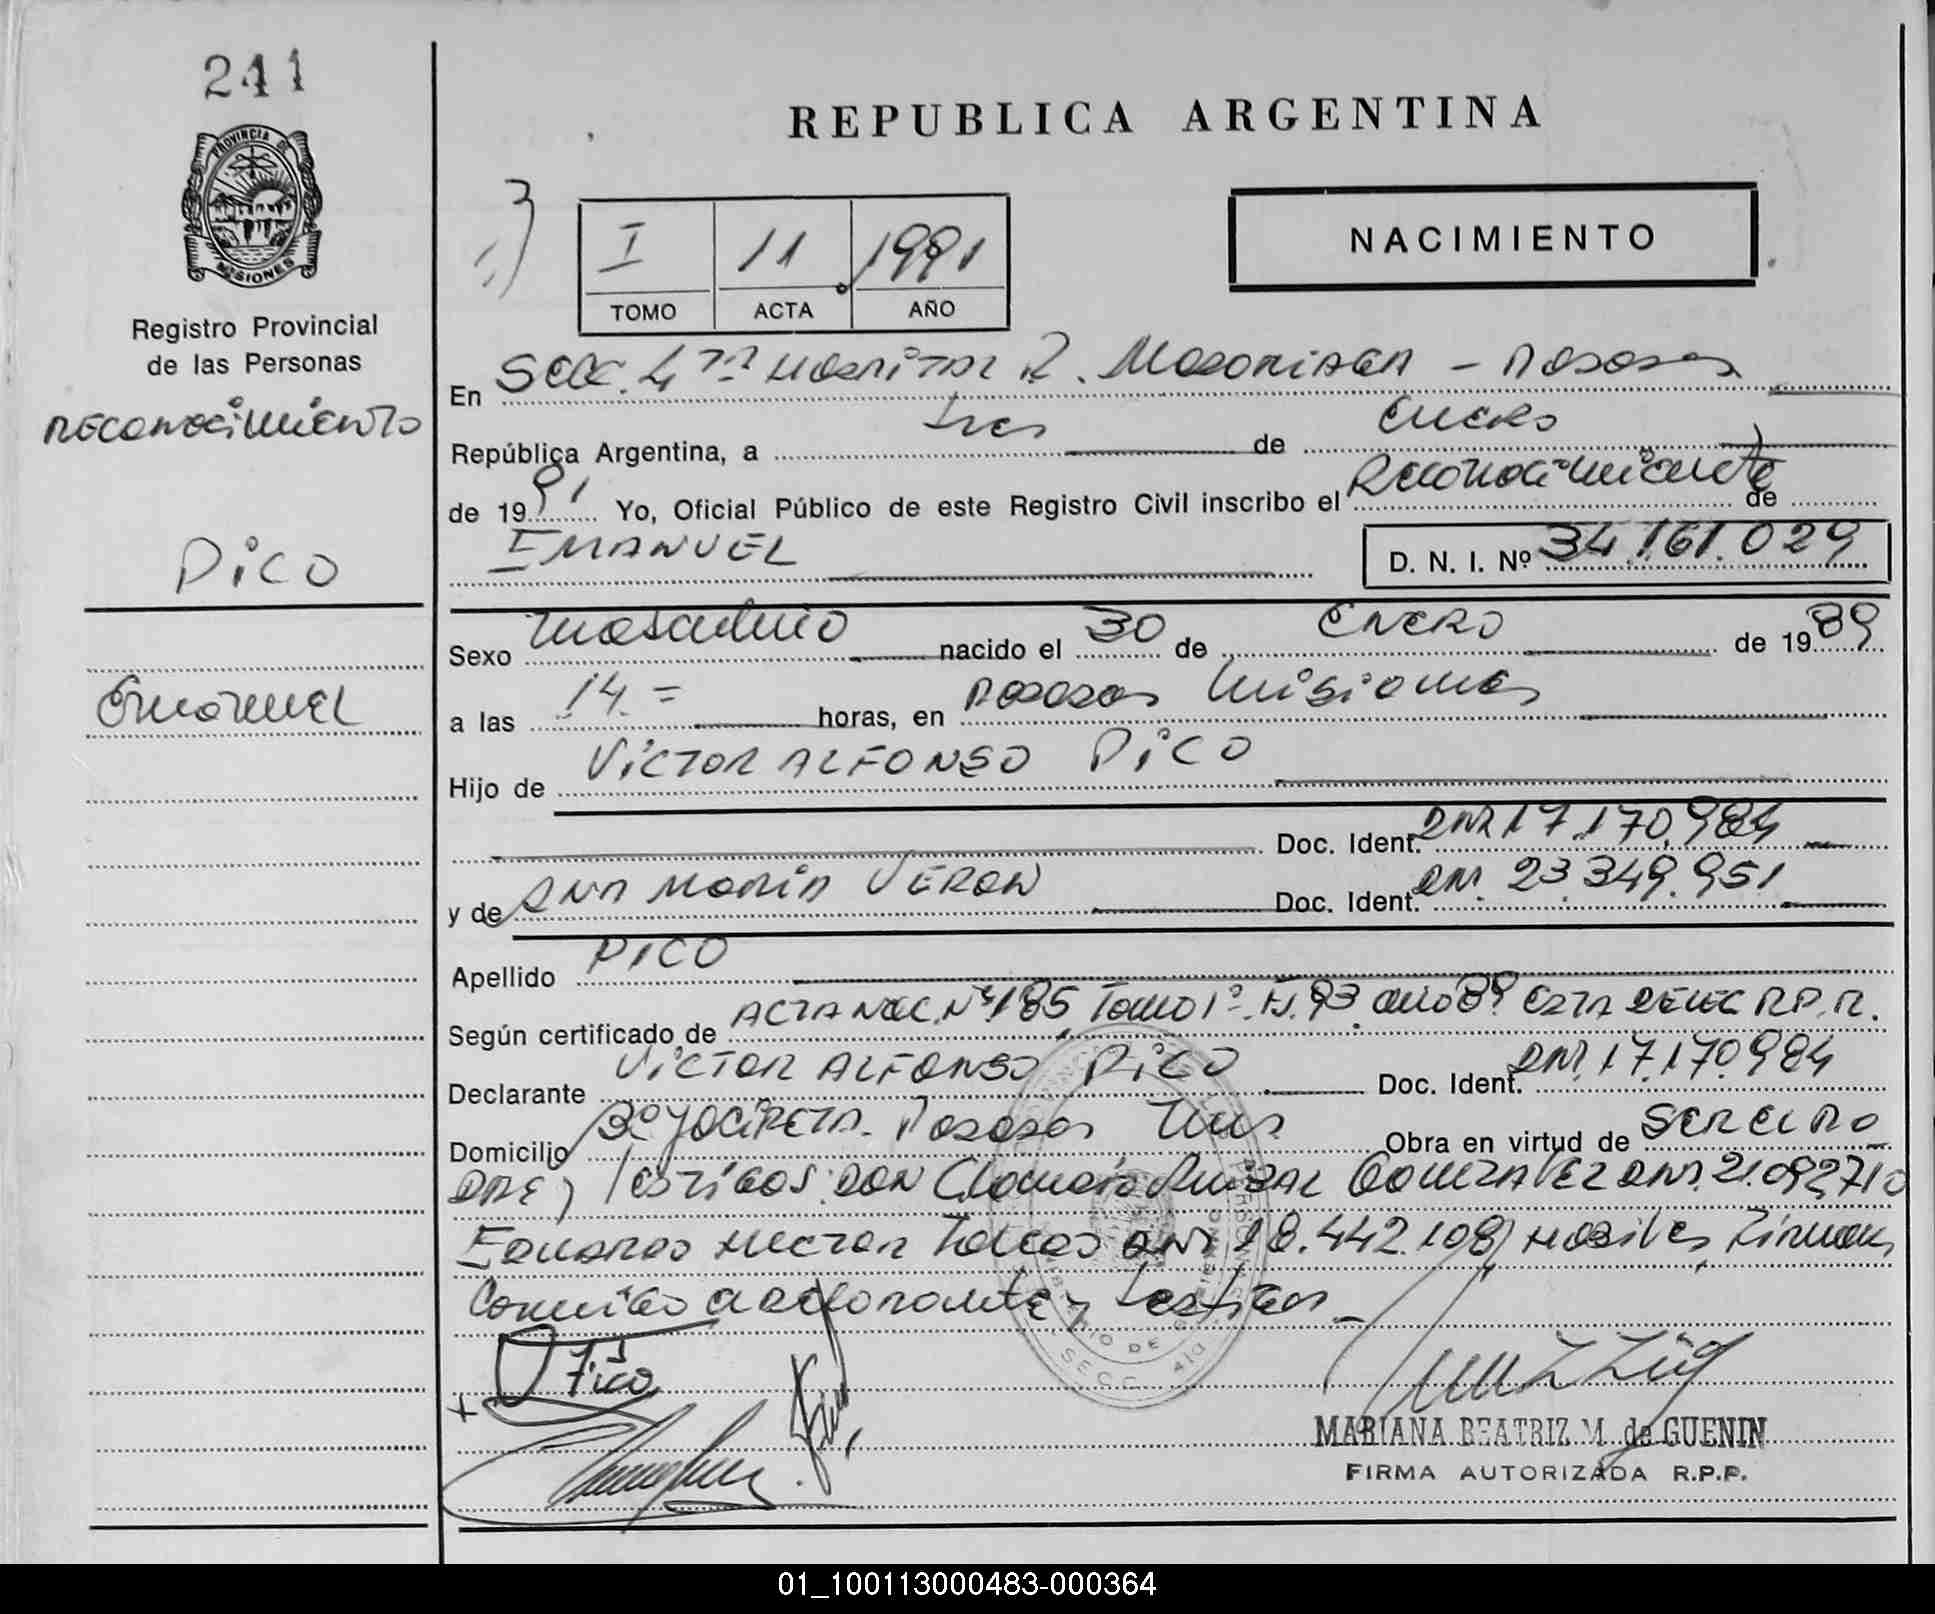 241
PROVINCIA DE
MISIONES
Registro Provincial
de las Personas
RECONOCIMIENTO
PICO
Emanuel
REPUBLICA ARGENTINA
I 11 1991
TOMO ACTA AÑO
NACIMIENTO
En Secc. 4ta Hospital R. Madariaga - Posadas
República Argentina, a tres de Enero
de 1991 Yo, Oficial Público de este Registro Civil inscribo el Reconocimiento de
EMANUEL D. N. I. Nº 34.161.029
Sexo masculino nacido el 30 de ENERO de 1989
a las 14.= horas, en Posadas Misiones
Hijo de VICTOR ALFONSO PICO
Doc. Ident. DNI 17.170.984
y de ANA MARIA VERON Doc. Ident. DNI 23.349.951
Apellido PICO
Según certificado de ACTA NAC. Nº 185 Tomo 1º F. 93 año 89 ESTA DELEG R.P.P.
Declarante VICTOR ALFONSO PICO Doc. Ident. DNI 17.170.984
Domicilio Bº YACIRETA. Posadas Mnes Obra en virtud de SER EL PA
DRE y TESTIGOS: DON Claudio GONZALEZ DNI. 21.092.710
EDUARDO HECTOR DNI 18.442.108 HABILES Firman
Conmigo declarante y testigos
Pico
SECC. 4ta
MARIANA BEATRIZ M. de GUENIN
FIRMA AUTORIZADA R.P.P.
01_100113000483-000364